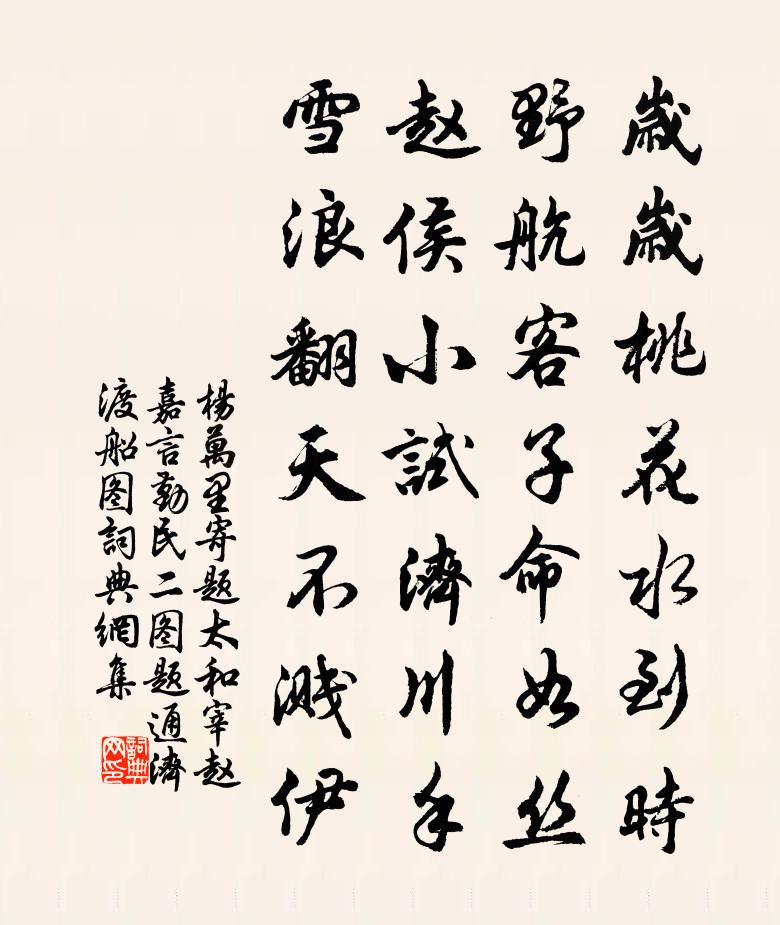 歲歲桃花水到時
野航客子命如丝
赵侯小試濟川手
雪浪翻天不溅伊
楊萬里寄題太和宰赵
嘉言勤民二图题通濟
渡船图詞典網集
詞典网印